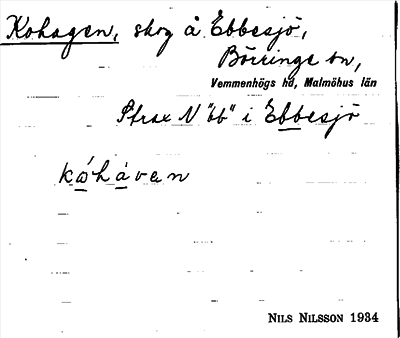 Kohagen, skog å Ebbesjö,
Börringe sn,
Vemmenhögs hd, Malmöhus län
Strax N "bb" i Ebbesjö
kóhávan
Nils Nilsson 1934